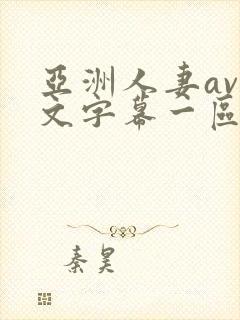 亞洲人妻av
文字幕一區
秦昊